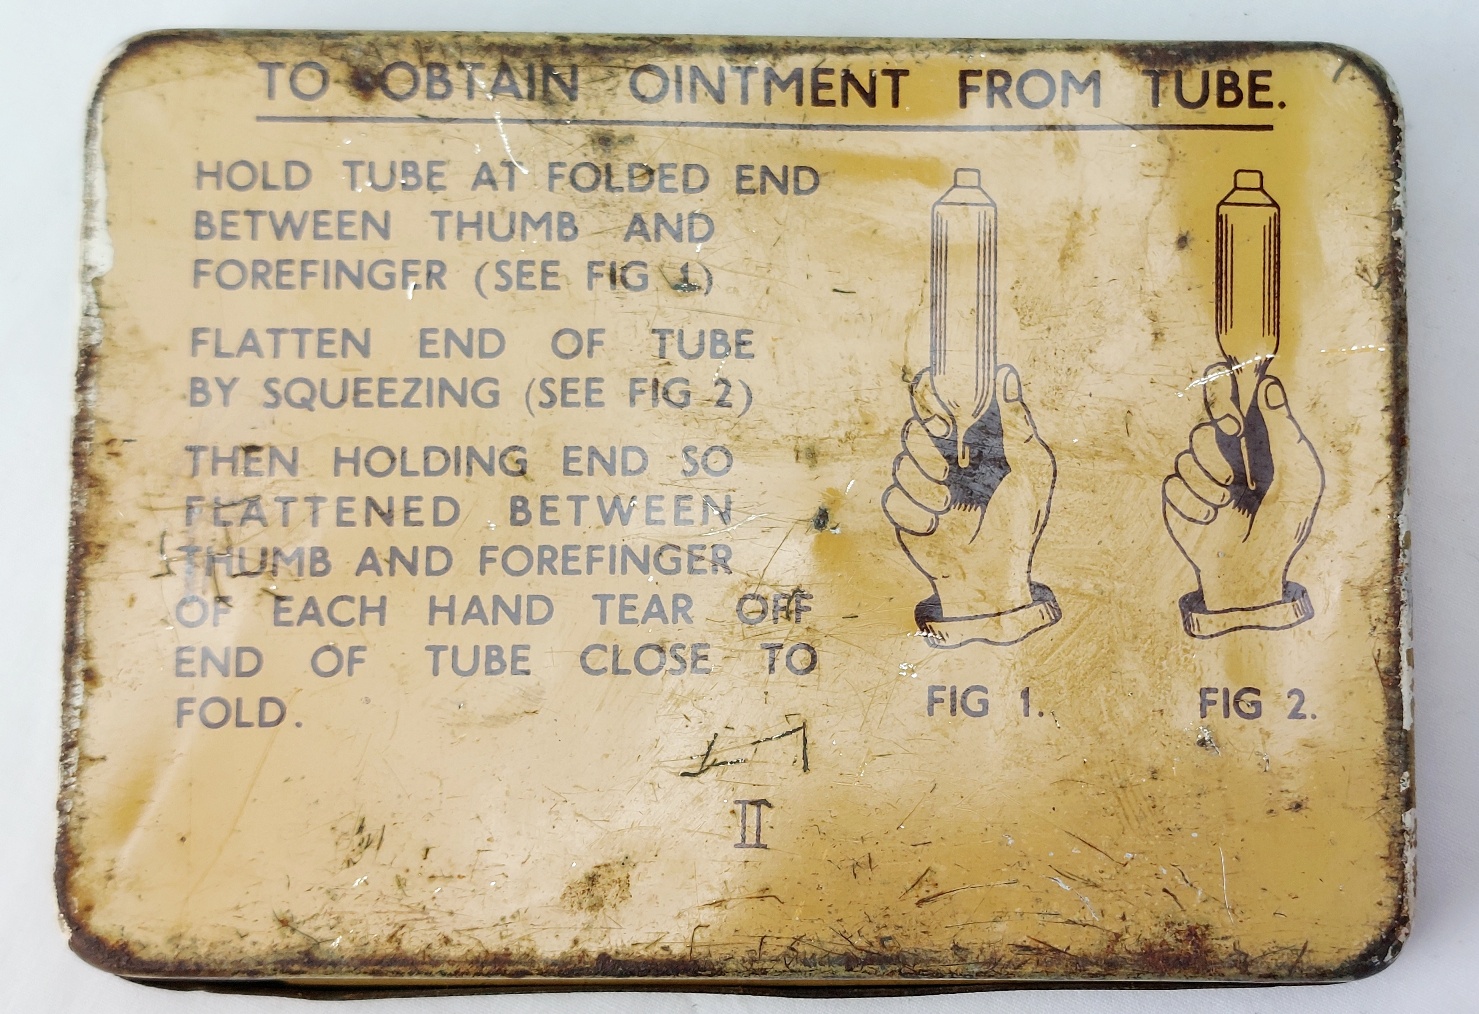 TO OBTAIN OINTMENT FROM TUBE.
HOLD TUBE AT FOLDED END
BETWEEN THUMB AND
FOREFINGER (SEE FIG 1)
FLATTEN END OF TUBE
BY SQUEEZING (SEE FIG 2)
THEN HOLDING END SO
FLATTENED BETWEEN
THUMB AND FOREFINGER
OF EACH HAND TEAR OFF
END OF TUBE CLOSE TO
FOLD.
FIG 1.
FIG 2.
II